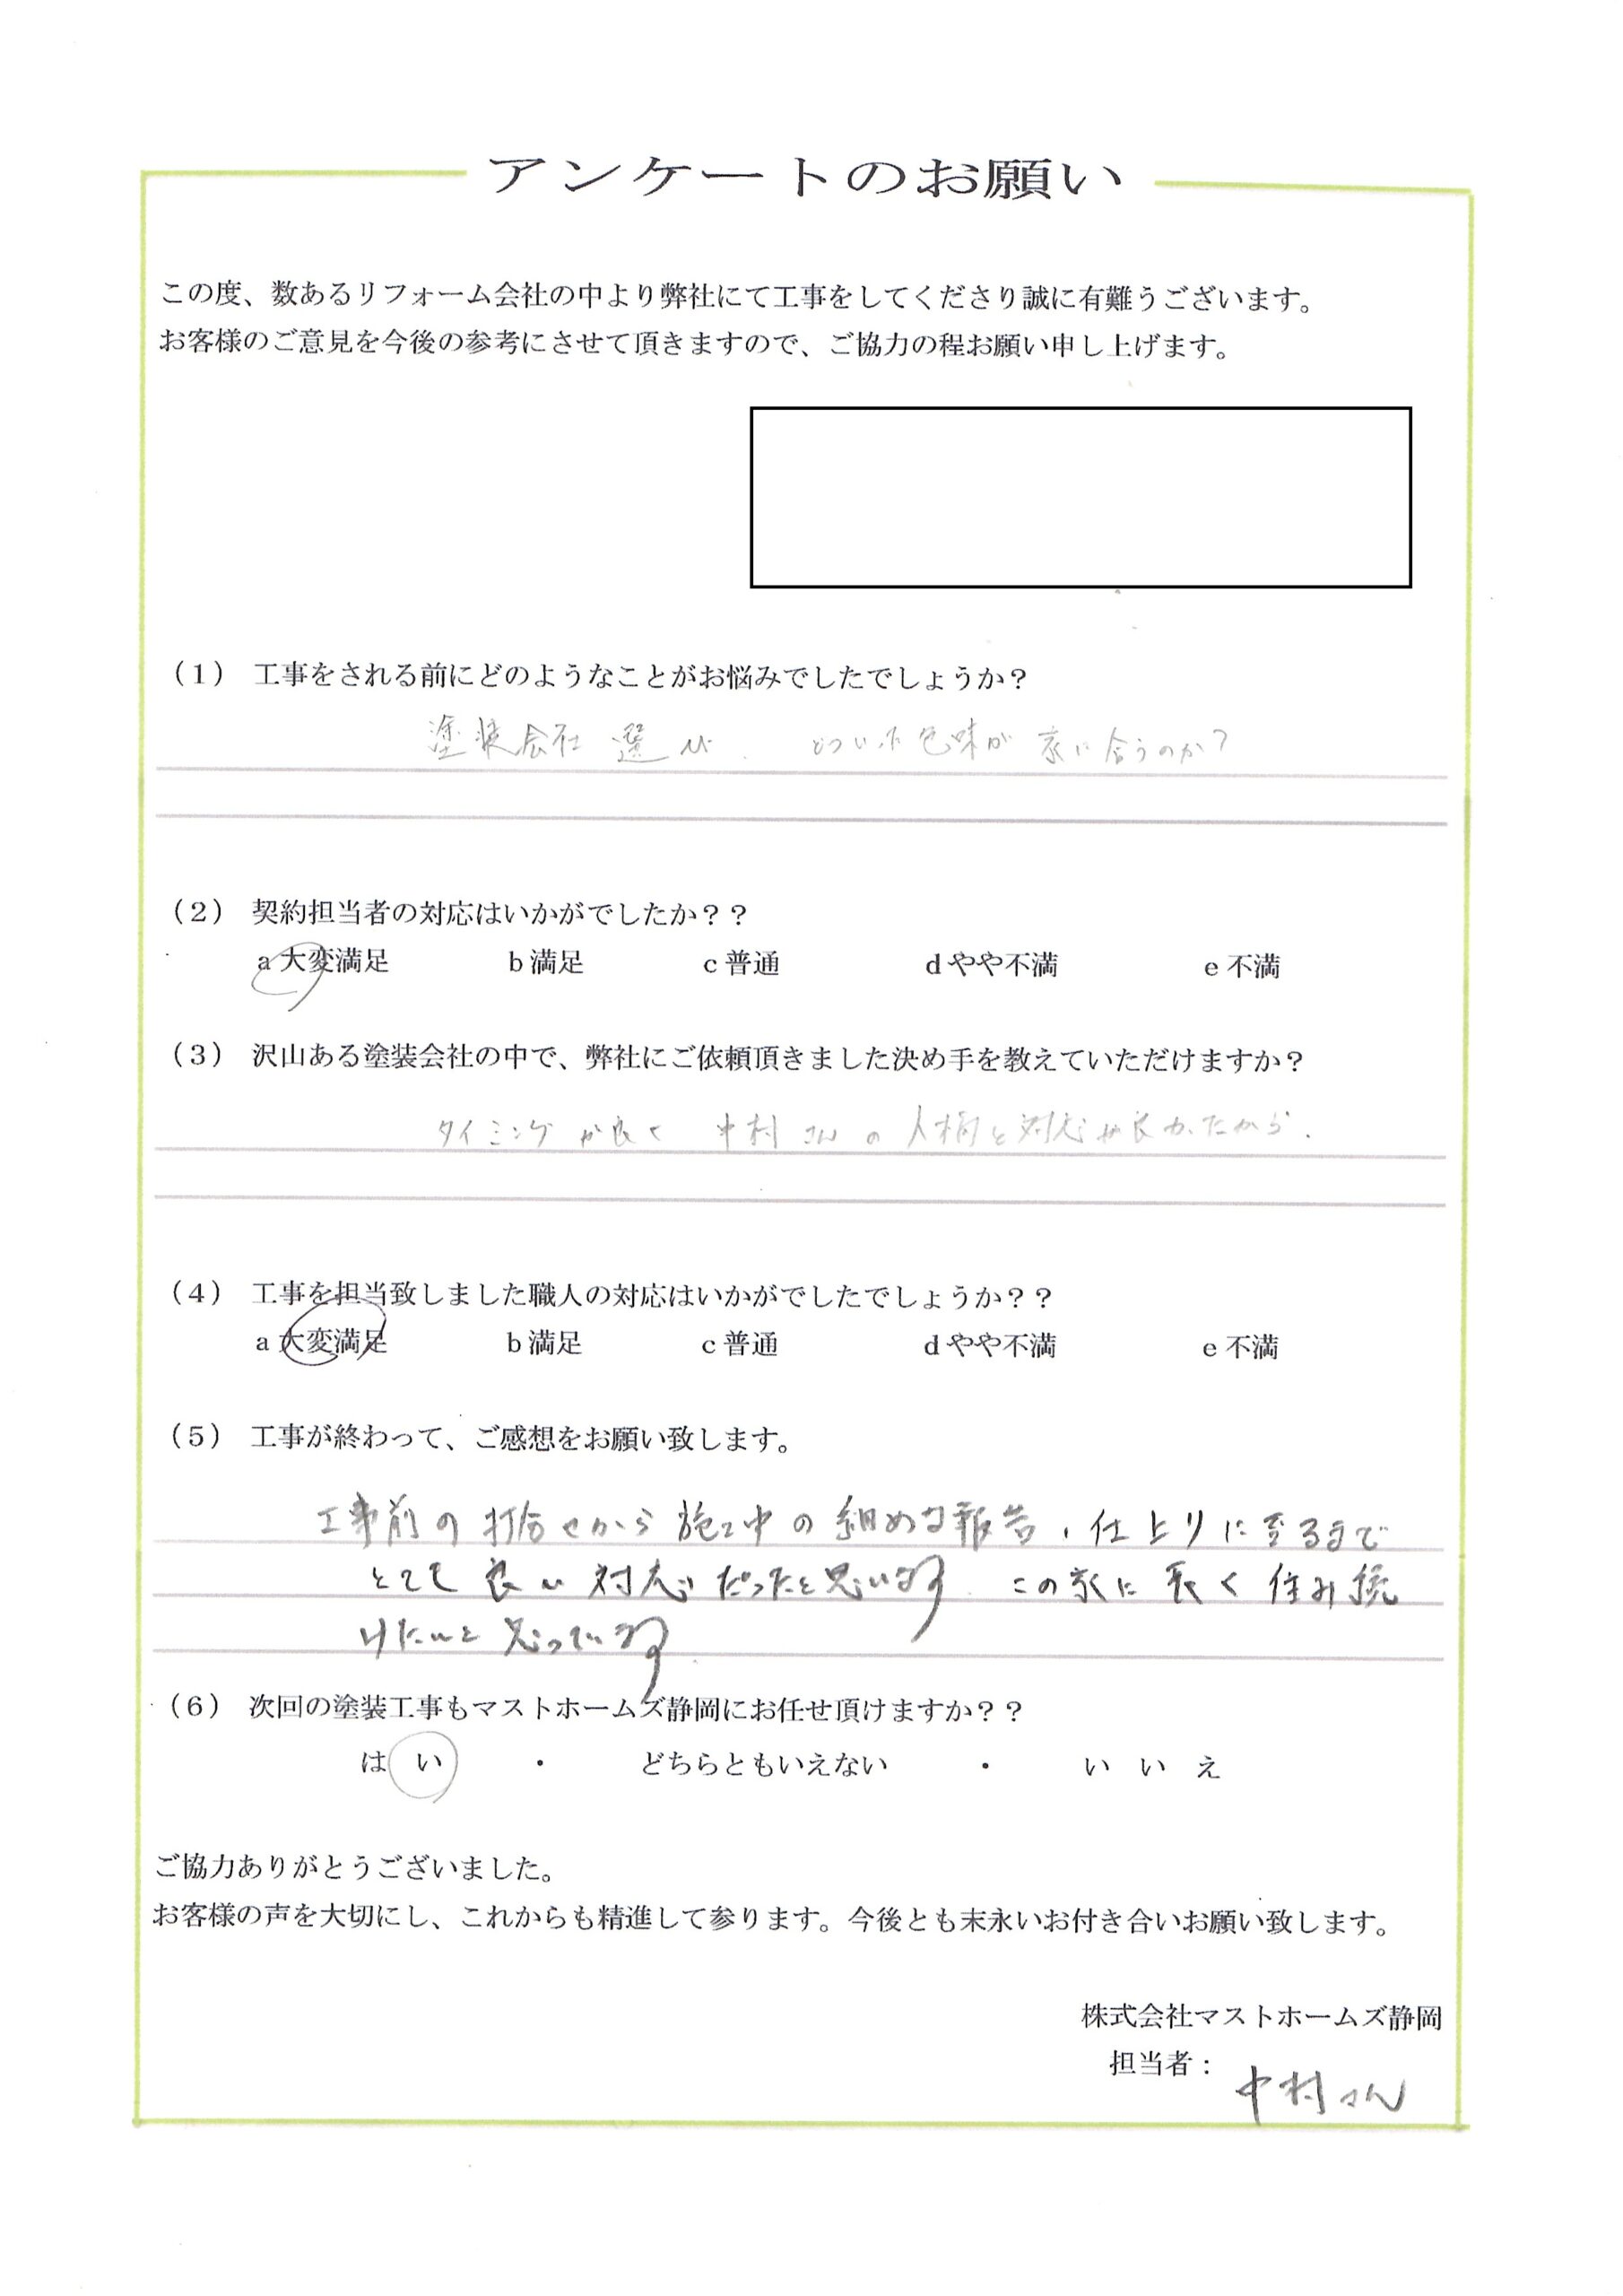 アンケートのお願い
この度、数あるリフォーム会社の中より弊社にて工事をしてくださり誠に有難うございます。
お客様のご意見を今後の参考にさせて頂きますので、ご協力の程お願い申し上げます。
（1） 工事をされる前にどのようなことがお悩みでしたでしょうか？
塗装会社選び. どういった色味が家に合うのか？
（2） 契約担当者の対応はいかがでしたか？？
a 大変満足 b 満足 c 普通 d やや不満 e 不満
（3） 沢山ある塗装会社の中で、弊社にご依頼頂きました決め手を教えていただけますか？
タイミングが良く 中村さんの人柄と対応が良かったから.
（4） 工事を担当致しました職人の対応はいかがでしたでしょうか？？
a 大変満足 b 満足 c 普通 d やや不満 e 不満
（5） 工事が終わって、ご感想をお願い致します。
工事前の打合せから施工中の細めな報告、仕上りに至るまで
とても良い対応だったと思います. この家に長く住み続
けたいと思っています
（6） 次回の塗装工事もマストホームズ静岡にお任せ頂けますか？？
はい ・ どちらともいえない ・ いいえ
ご協力ありがとうございました。
お客様の声を大切にし、これからも精進して参ります。今後とも末永いお付き合いお願い致します。
株式会社マストホームズ静岡
担当者： 中村さん